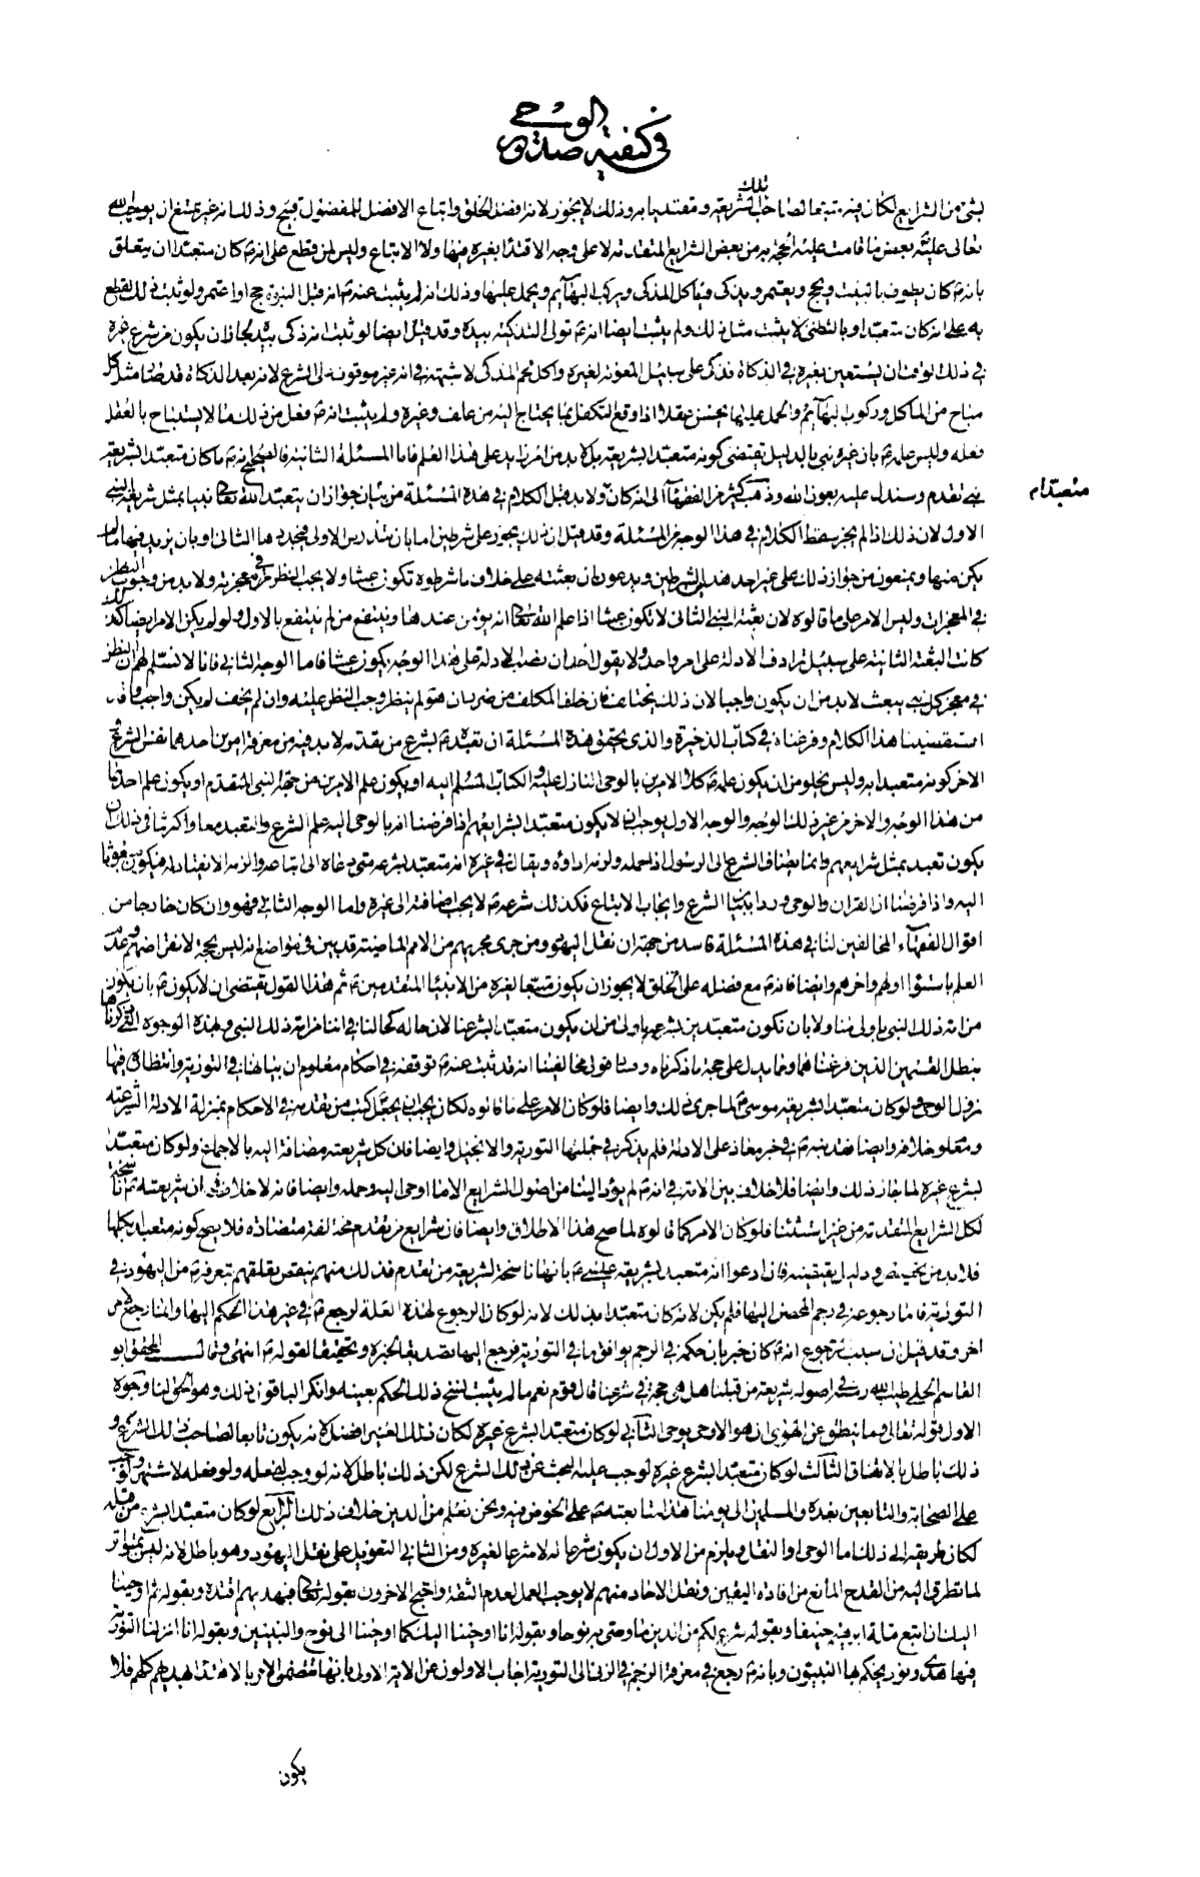 في كيفية صدور الوحي
بشيء من الشرايع لكان فيه متبعا لصاحب تلك الشريعة ومقتديا به وذلك لا يجوز لانه افضل الخلق واتباع الافضل للمفضول قبيح وذلك انه غير ممتنع ان يوجب الله
تعالى عليه بعض ما قامت عليه الحجة به من بعض الشرايع المتقدمة لا على وجه الاقتداء بغيره فيها ولا الاتباع وليس لمن قطع على انه كان متعبدا ان يتعلق
بانه كان يطوف بالبيت ويحج ويعتمر ويذكي وياكل المذكى ويركب البهايم ويحمل عليها وذلك انه لم يثبت عنه انه قبل النبوة حج او اعتمر ولو ثبت ذلك لقطع
به على انه كان متعبدا وبالتظني لا يثبت مثل ذلك ولم يثبت ايضا انه تولى التذكية بيده وقد قيل ايضا لو ثبت انه ذكى بيده لجاز ان يكون من شرع غيره
في ذلك الوقت ان يستعين بغيره في الذكاة فذكى على سبيل المعونة لغيره واكل لحم المذكى لا شبهة في انه غير موقوف على الشرع لانه بعد الذكاة قد صار مثل كل
مباح من الماكل وركوب البهائم والحمل عليها يحسن عقلا اذا وقع التكفل بما يحتاج اليه من علف وغيره ولم يثبت انه فعل من ذلك ما لا يستباح بالعقل
فعله وليس علمه بان غيره نبي بالدليل يقتضي كونه متعبدا بشريعته بل لا بد من امر زايد على هذا العلم فاما المسئلة الثانية فالصحيح انه ما كان متعبدا بشريعة
نبي تقدم وسندل عليه بعون الله وذهب كثير من الفقهاء الى انه كان متعبدا ولا بد قبل الكلام في هذه المسئلة من بيان جواز ان يتعبد الله تعالى نبيا بمثل شريعة النبي
الاول لان ذلك اذا لم يجز سقط الكلام في هذا الوجه من المسئلة وقد قيل ان ذلك يجوز على شرطين اما بان تندرس الاولى فيجددها الثاني او بان يزيد فيها ما لم
يكن منها ويمنعون من جواز ذلك على غير احد هذين الشرطين ويدعون ان بعثته على خلاف ما شرطوه تكون عبثا ولا يجب النظر في معجزته ولا بد من وجوب النظر
في المعجزات وليس الامر على ما قالوه لان بعثة النبي الثاني لا تكون عبثا اذا علم الله تعالى انه يؤمن عندها وينتفع من لم ينتفع بالاول ولو لم يكن الامر ايضا كذلك
كانت البعثة الثانية على سبيل ترادف الادلة على امر واحد ولا يقول احد ان نصب الادلة على هذا الوجه يكون عبثا فاما الوجه الثاني فانا لا نسلم لهم ان النظر
في معجز كل نبي يبعث لا بد من ان يكون واجبا لان ذلك يختلف فان خاف المكلف من ضرر ان هو لم ينظر وجب النظر عليه وان لم يخف لم يكن واجبا وقد
استقصينا هذا الكلام وفرغناه في كتاب الذخيرة والذي يحقق هذه المسئلة ان تعبده بشرع من تقدمه لا بد فيه من معرفة امرين احدهما نفس الشرع و
الاخر كونه متعبدا به وليس يخلو من ان يكون علم كلا الامرين بالوحي النازل عليه والكتاب المسلم اليه او يكون علم الامرين من جهة النبي المتقدم او يكون علم احدهما
من هذا الوجه والاخر من غير ذلك الوجه والوجه الاول يوجب ان لا يكون متعبدا بشرايعهم اذا فرضنا انه بالوحي اليه علم الشرع والتعبد معا واكثر ما في ذلك ان
يكون تعبد بمثل شرايعهم وانما يضاف الشرع الى الرسول اذا حمله ولزمه اداؤه ويقال في غيره انه متعبد بشرعه متى دعاه الى اتباعه والزمه الانقياد له فيكون مبعوثا
اليه واذا فرضنا ان القران والوحي وردا ببيان الشرع وايجاب الاتباع فكذلك شرعه لا يجب اضافته الى غيره واما الوجه الثاني فهو وان كان خارجا من
اقوال الفقهاء المخالفين لنا في هذه المسئلة فاسد من جهة ان نقل اليهود ومن جرى مجريهم من الامم الماضية قد بين في مواضع انه ليس بحجة لانقراضهم وعدم
العلم باستواء اولهم واخرهم وايضا فانه مع فضله على الخلق لا يجوز ان يكون متبعا لغيره من الانبياء المتقدمين ثم هذا القول يقتضي ان لا يكون بان يكون
من امة ذلك النبي باولى منا ولا بان نكون متعبدين بشرعه باولى من ان يكون متعبدا بشرعنا لان حاله كحالنا في اننا من امة ذلك النبي وبهذه الوجوه التي ذكرناها
نبطل القسمين الذين فرغنا هما ومما يدل على صحة ما ذكرناه وفساد قول مخالفينا انه قد ثبت عنه توقفه في احكام معلوم ان بيانها في التورية وانتظاره فيها
نزول الوحي ولو كان متعبدا بشريعة موسى لما جرى ذلك وايضا فلو كان الامر على ما قالوه لكان يجب ان يجعل كتب من تقدمه في الاحكام بمنزلة الادلة الشرعية
ومعلوم خلافه وايضا فقد نبه في خبر معاذ على الادلة فلم يذكر في جملتها التورية والانجيل وايضا فان كل شريعته مضافة اليه بالاجماع ولو كان متعبدا
بشرع غيره لما جاز ذلك وايضا فلا خلاف بين الامة في انه لم يؤد الينا من اصول الشرايع الا ما اوحي اليه وحمله وايضا فانه لا خلاف في ان شريعته ناسخة
لكل الشرايع المتقدمة من غير استثناء فلو كان الامر كما قالوه لما صح هذا الاطلاق وايضا فان شرايع من تقدم مختلفة متضادة فلا يصح كونه متعبدا بكلها
فلا بد من تخصيص ودليل يقتضيه فان ادعوا انه متعبد بشريعة عيسى بانها ناسخة لشريعة من تقدم فذلك منهم ينقض تعلقهم بتعرفه من اليهود في
التورية فاما رجوعه في رجم المحصن اليها فلم يكن لانه كان متعبدا بذلك لانه لو كان الرجوع لهذه العلة لرجع في غير هذا الحكم اليها وانما رجع لامر
اخر وقد قيل ان سبب الرجوع انه كان خبر بان حكمه في الرجم يوافق ما في التورية فرجع اليها تصديقا لخبره وتحقيقا لقوله انتهى وقال المحقق ابو
القاسم الحلي طيب الله رمسه في اصوله شريعة من قبلنا هل هي حجة في شرعنا قال قوم نعم ما لم يثبت نسخ ذلك الحكم بعينه وانكر الباقون ذلك وهو الحق لنا وجوه
الاول قوله تعالى وما ينطق عن الهوى ان هو الا وحي يوحى الثاني لو كان متعبدا بشرع غيره لكان ذلك الغير افضل لانه يكون تابعا لصاحب ذلك الشرع و
ذلك باطل بالاتفاق الثالث لو كان متعبدا بشرع غيره لوجب عليه البحث عن ذلك الشرع لكن ذلك باطل لانه لو وجب لفعله ولو فعله لاشتهر ولوجب
على الصحابة والتابعين بعده والمسلمين الى يومنا هذا متابعته على الخوض فيه ونحن نعلم من الدين خلاف ذلك الرابع لو كان متعبدا بشرع من قبله
لكان طريقه الى ذلك اما الوحي او النقل ويلزم من الاول ان يكون شرعا له لا شرعا لغيره ومن الثاني التعويل على نقل اليهود وهو باطل لانه ليس بمتواتر
لما تطرق اليه من القدح المانع من افادة اليقين ونقل الاحاد منهم لا يوجب العمل لعدم الثقة واحتج الاخرون بقوله تعالى فبهديهم اقتده وبقوله ثم اوحينا
اليك ان اتبع ملة ابرهيم حنيفا وبقوله شرع لكم من الدين ما وصى به نوحا وبقوله انا اوحينا اليك كما اوحينا الى نوح والنبيين وبقوله انا انزلنا التورية
فيها هدى ونور يحكم بها النبيون وبانه رجع في معرفة الرجم في الزنا الى التورية اجاب الاولون عن الاية الاولى بانها تتضمن الامر بالاهتداء بهديهم كلهم فلا
متعبدا م
يكون